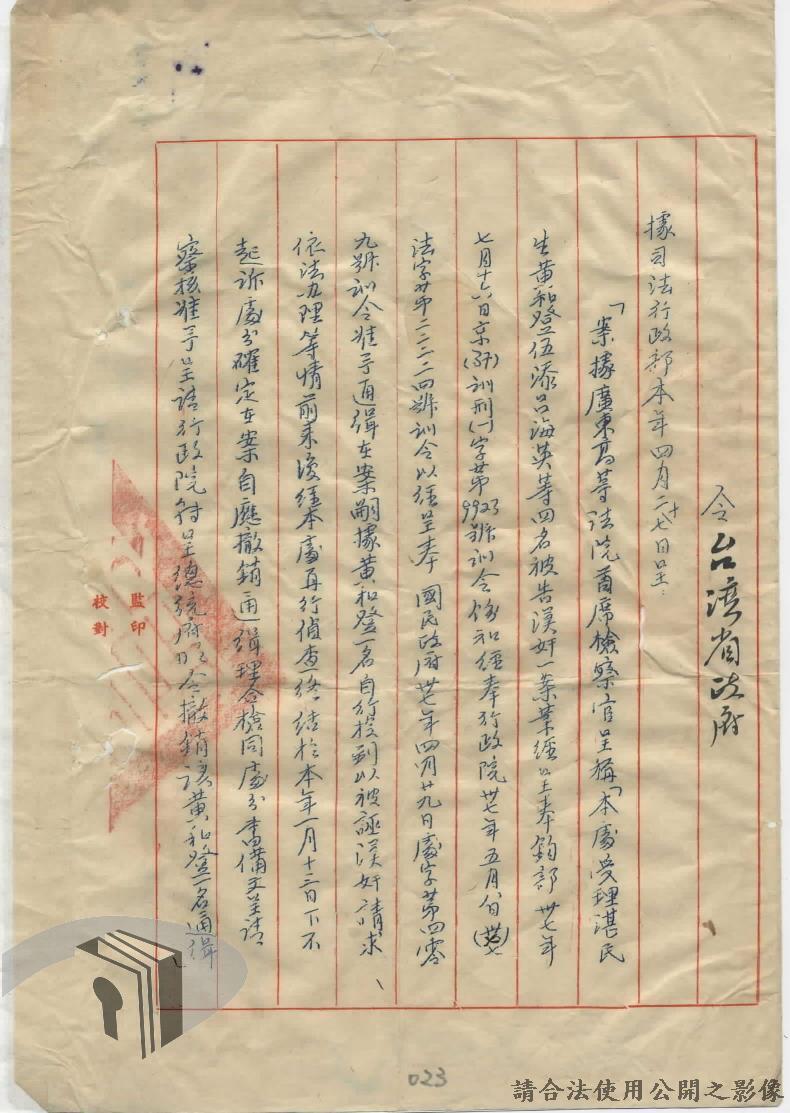 令台湾省政府
據司法行政部本年四月二十七日呈：
「案據廣東高等法院首席檢察官呈稱「本處受理湛民
生黄和登伍添呂海英等四名被告漢奸一案業經呈奉鈞部卅七年
七月十六日京(37)訓刑(一)字第9923號訓令飭知經奉行政院卅七年五月八日(卅七)
法字第二二二二四號訓令以經呈奉 國民政府卅七年四月廿九日處字第四零
九號訓令准予通緝在案嗣據黄和登一名自行投到以被誣漢奸請求
依法办理等情前來復經本處再行偵查終結於本年一月十三日予以不
起诉處分確定在案自應撤銷通緝理合檢同處分書備文呈請
察核准予呈請行政院轉呈總統府明令撤銷該黄和登一名通緝
監印
校對
023
請合法使用公開之影像